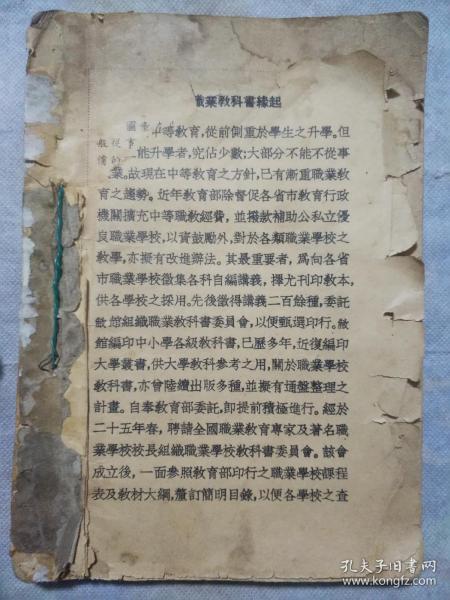 職業教科書緣起
中等教育，從前側重於學生之升學。但
能升學者，究佔少數；大部分不能不從事
業，故現在中等教育之方針，已有漸重職業教
育之趨勢。近年教育部除督促各省市教育行政
機關擴充中等職教經費，並撥款補助公私立優
良職業學校，以資鼓勵外，對於各類職業學校之
教學，亦擬有改進辦法。其最重要者，爲向各省
市職業學校徵集各科自編講義，擇尤刊印教本，
供各學校之採用。先後徵得講義二百餘種，委託
敝館組織職業教科書委員會，以便甄選印行。敝
館編印中小學各級教科書，已歷多年，近復編印
大學叢書，供大學教科參考之用，關於職業學校
教科書，亦曾陸續出版多種，並擬有通盤整理之
計畫。自奉教育部委託，卽提前積極進行。經於
二十五年春，聘請全國職業教育專家及著名職
業學校校長組織職業學校教科書委員會。該會
成立後，一面參照教育部印行之職業學校課程
表及教材大綱，釐訂簡明目錄，以便各學校之查
孔夫子旧书网
www.kongfz.com